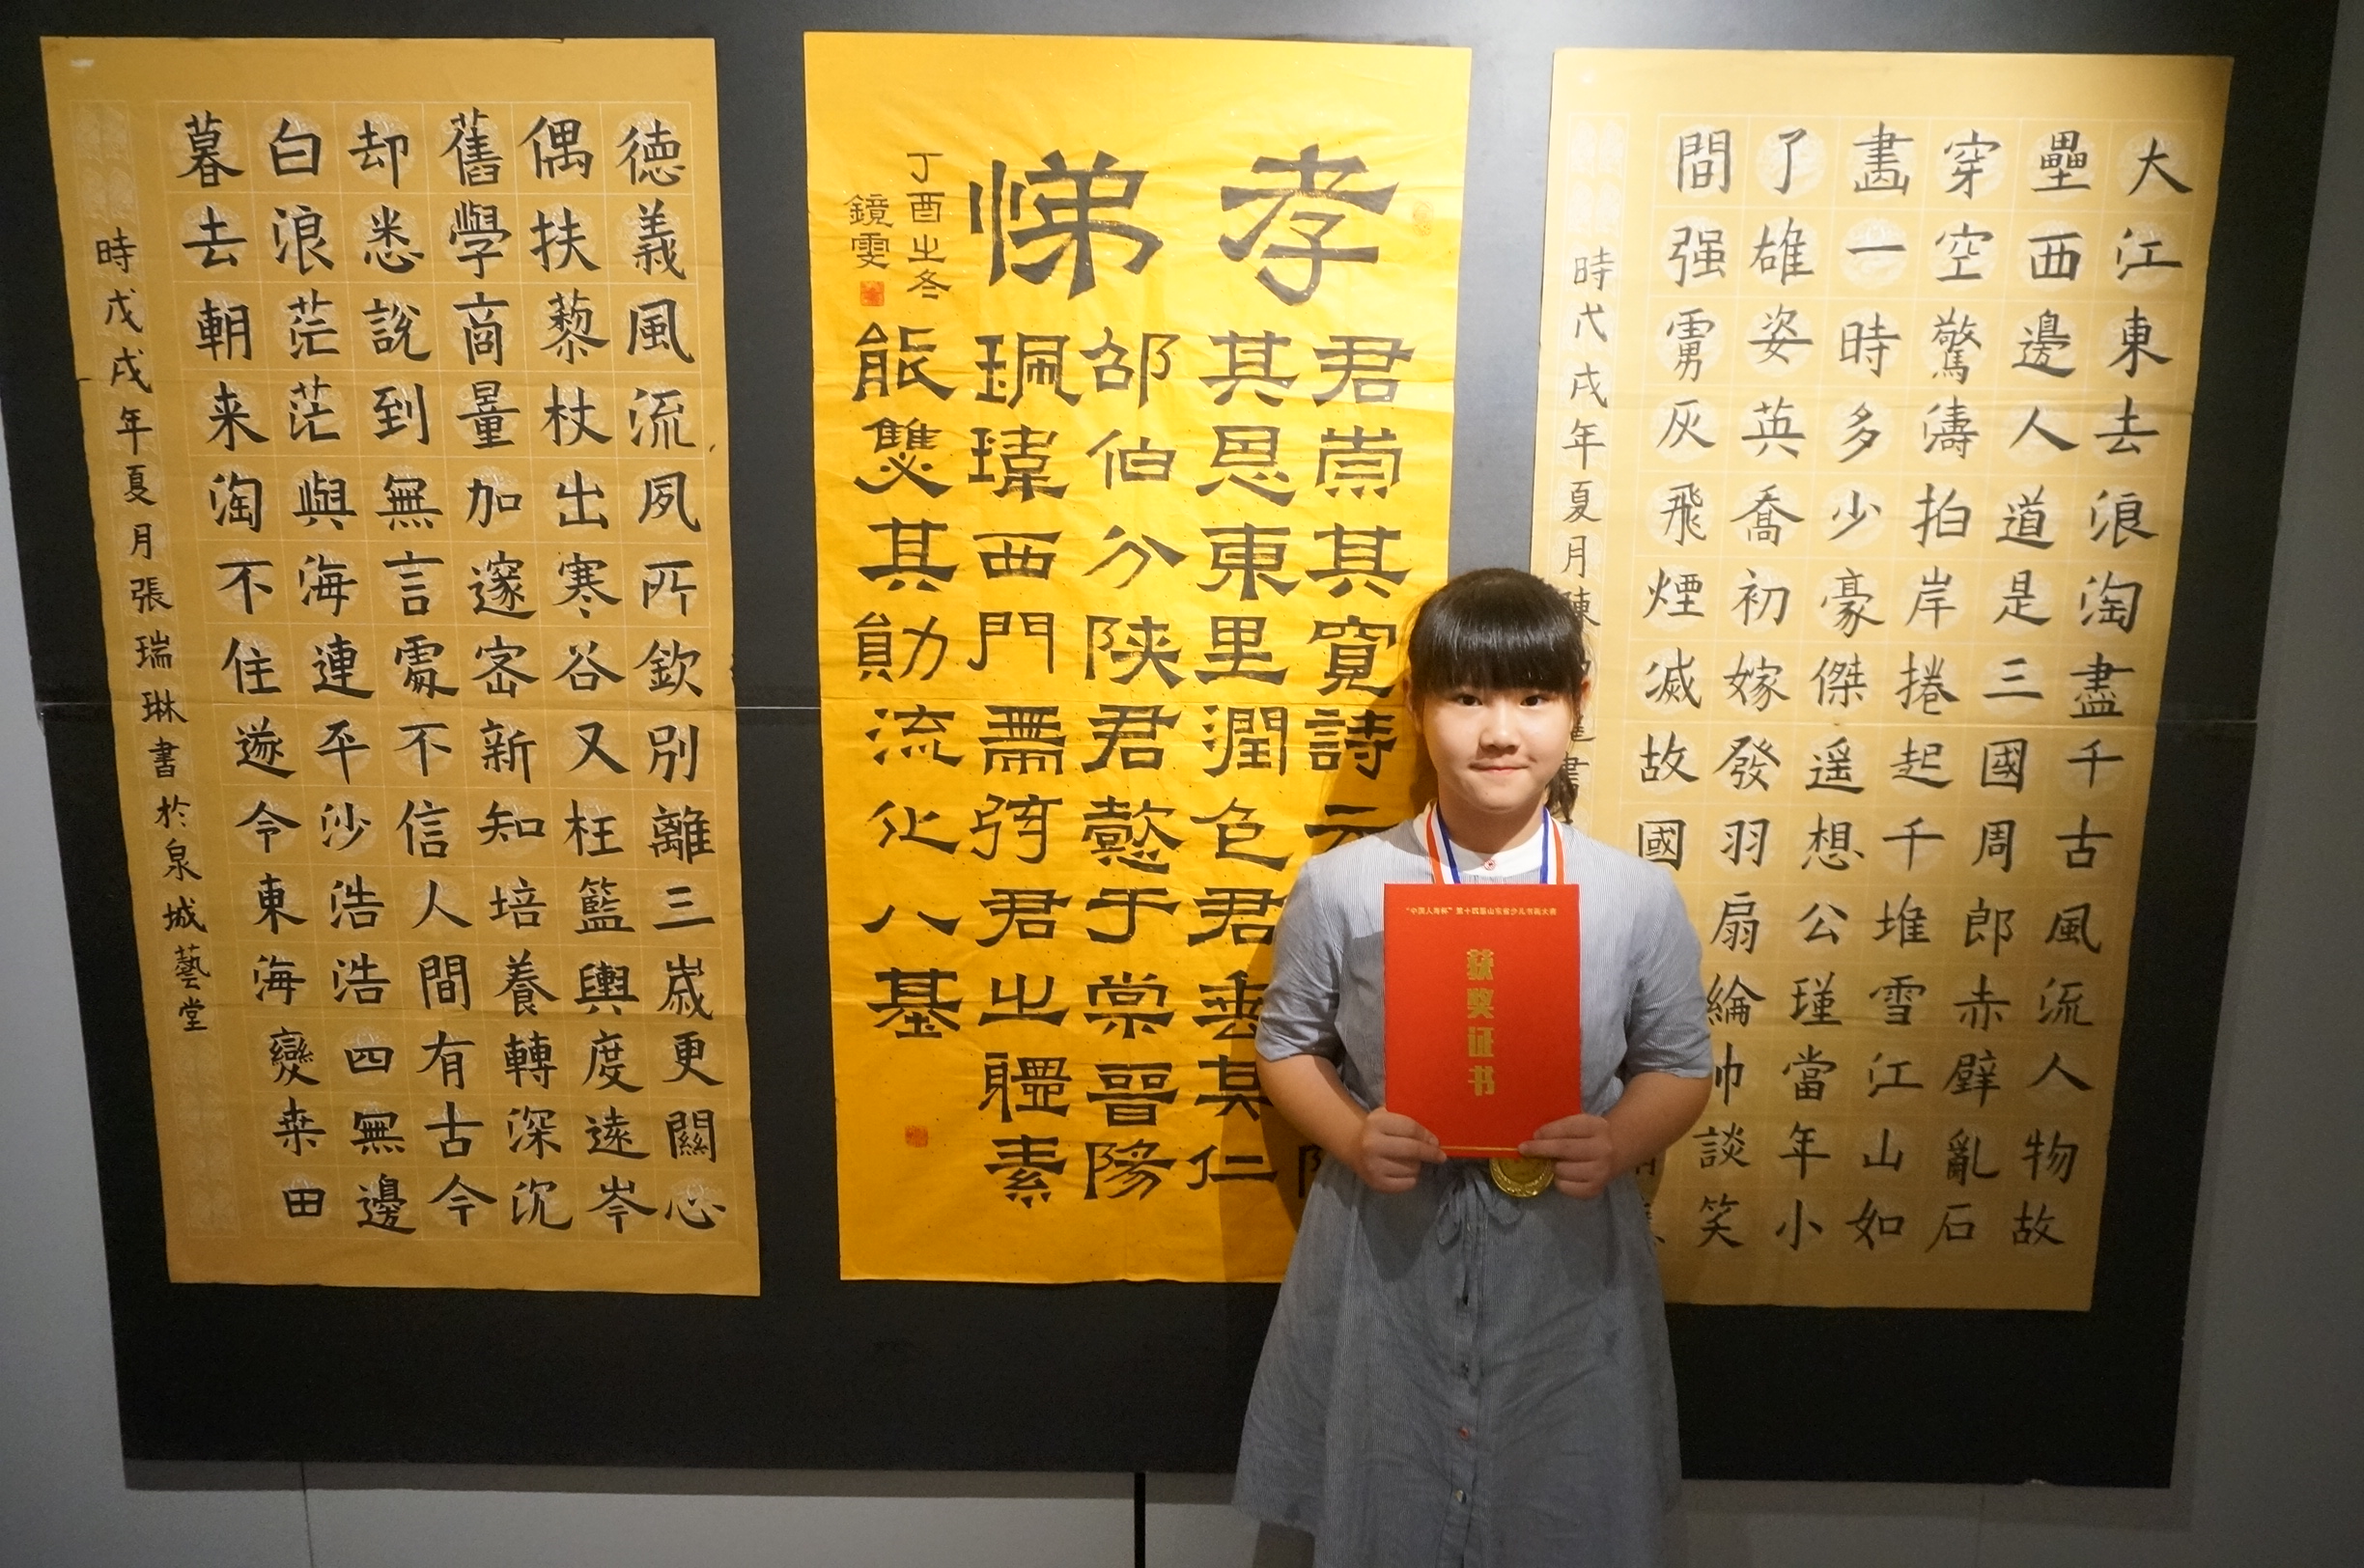 大江東去浪淘盡千古風流人物故
壘西邊人道是三國周郎赤壁亂石
穿空驚濤拍岸捲起千堆雪江山如
畵一時多少豪傑遥想公瑾當年小
了雄姿英喬初嫁發羽扇綸談笑
間强虜灰飛煙滅故國
時戊戌年夏月陳書
孝悌
君崇其寬詩云
其恩東里潤色君垂其仁
邵伯分陝君懿于棠晉陽
珮瑋西門帶弦君之體素
能雙其勛流化八基
丁酉之冬
鏡雯
德義風流夙所欽別離三歲更關心
偶扶藜杖出寒谷又枉籃輿度遠岑
舊學商量加邃密新知培養轉深沉
却悉說到無言處不信人間有古今
白浪茫茫與海連平沙浩浩四無邊
暮去朝来淘不住遂令東海變桒田
時戊戌年夏月張瑞琳書於泉城藝堂
第十四届山东省少儿书画大赛
获奖证书